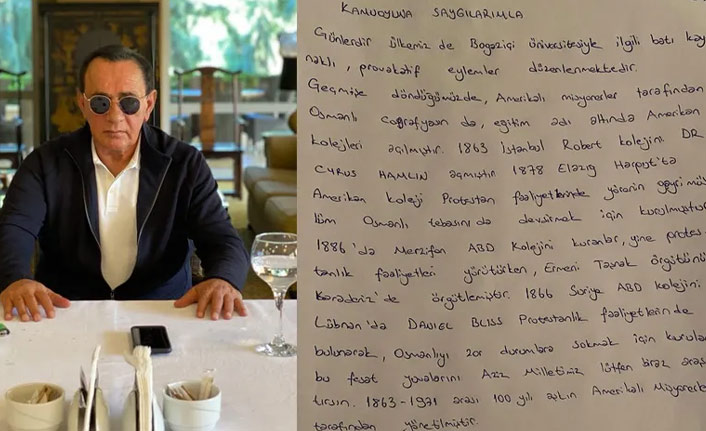 KAMUOYUNA SAYGILARIMLA
Günlerdir ülkemiz de Bogaziçi üniversitesiyle ilgili batı kay
naklı, provakatif eylemler düzenlenmektedir.
Geçmişe döndüğümüzde, Amerikalı misyonerler tarafından
Osmanlı coğrafyasın da, eğitim adı altında Amerikan
kolejleri açılmıştır. 1863 İstanbul Robert kolejini DR
CYRUS HAMLIN açmıştır 1878 Elazığ Harput'ta
Amerikan koleji Protestan faaliyetlerinde yörenin gayri müs
tüm Osmanlı tebasını da devşirmek için kurulmuştur
1886'da Merzifon ABD Kolejini kuranlar, yine protes-
tanlık faaliyetleri yürütürken, Ermeni Taşnak örgütünü
Karadeniz'de örgütlemiştir. 1866 Suriye ABD kolejini
Lübnan'da DANIEL BLISS Protestanlık faaliyetlerin de
bulunarak, Osmanlıyı zor durumlara sokmak için kurulan
bu fesat yuvalarını Aziz Milletimiz lütfen biraz araş
tırsın. 1863-1971 arası 100 yılı aşkın Amerikalı Misyonerler
tarafından yönetilmiştir.